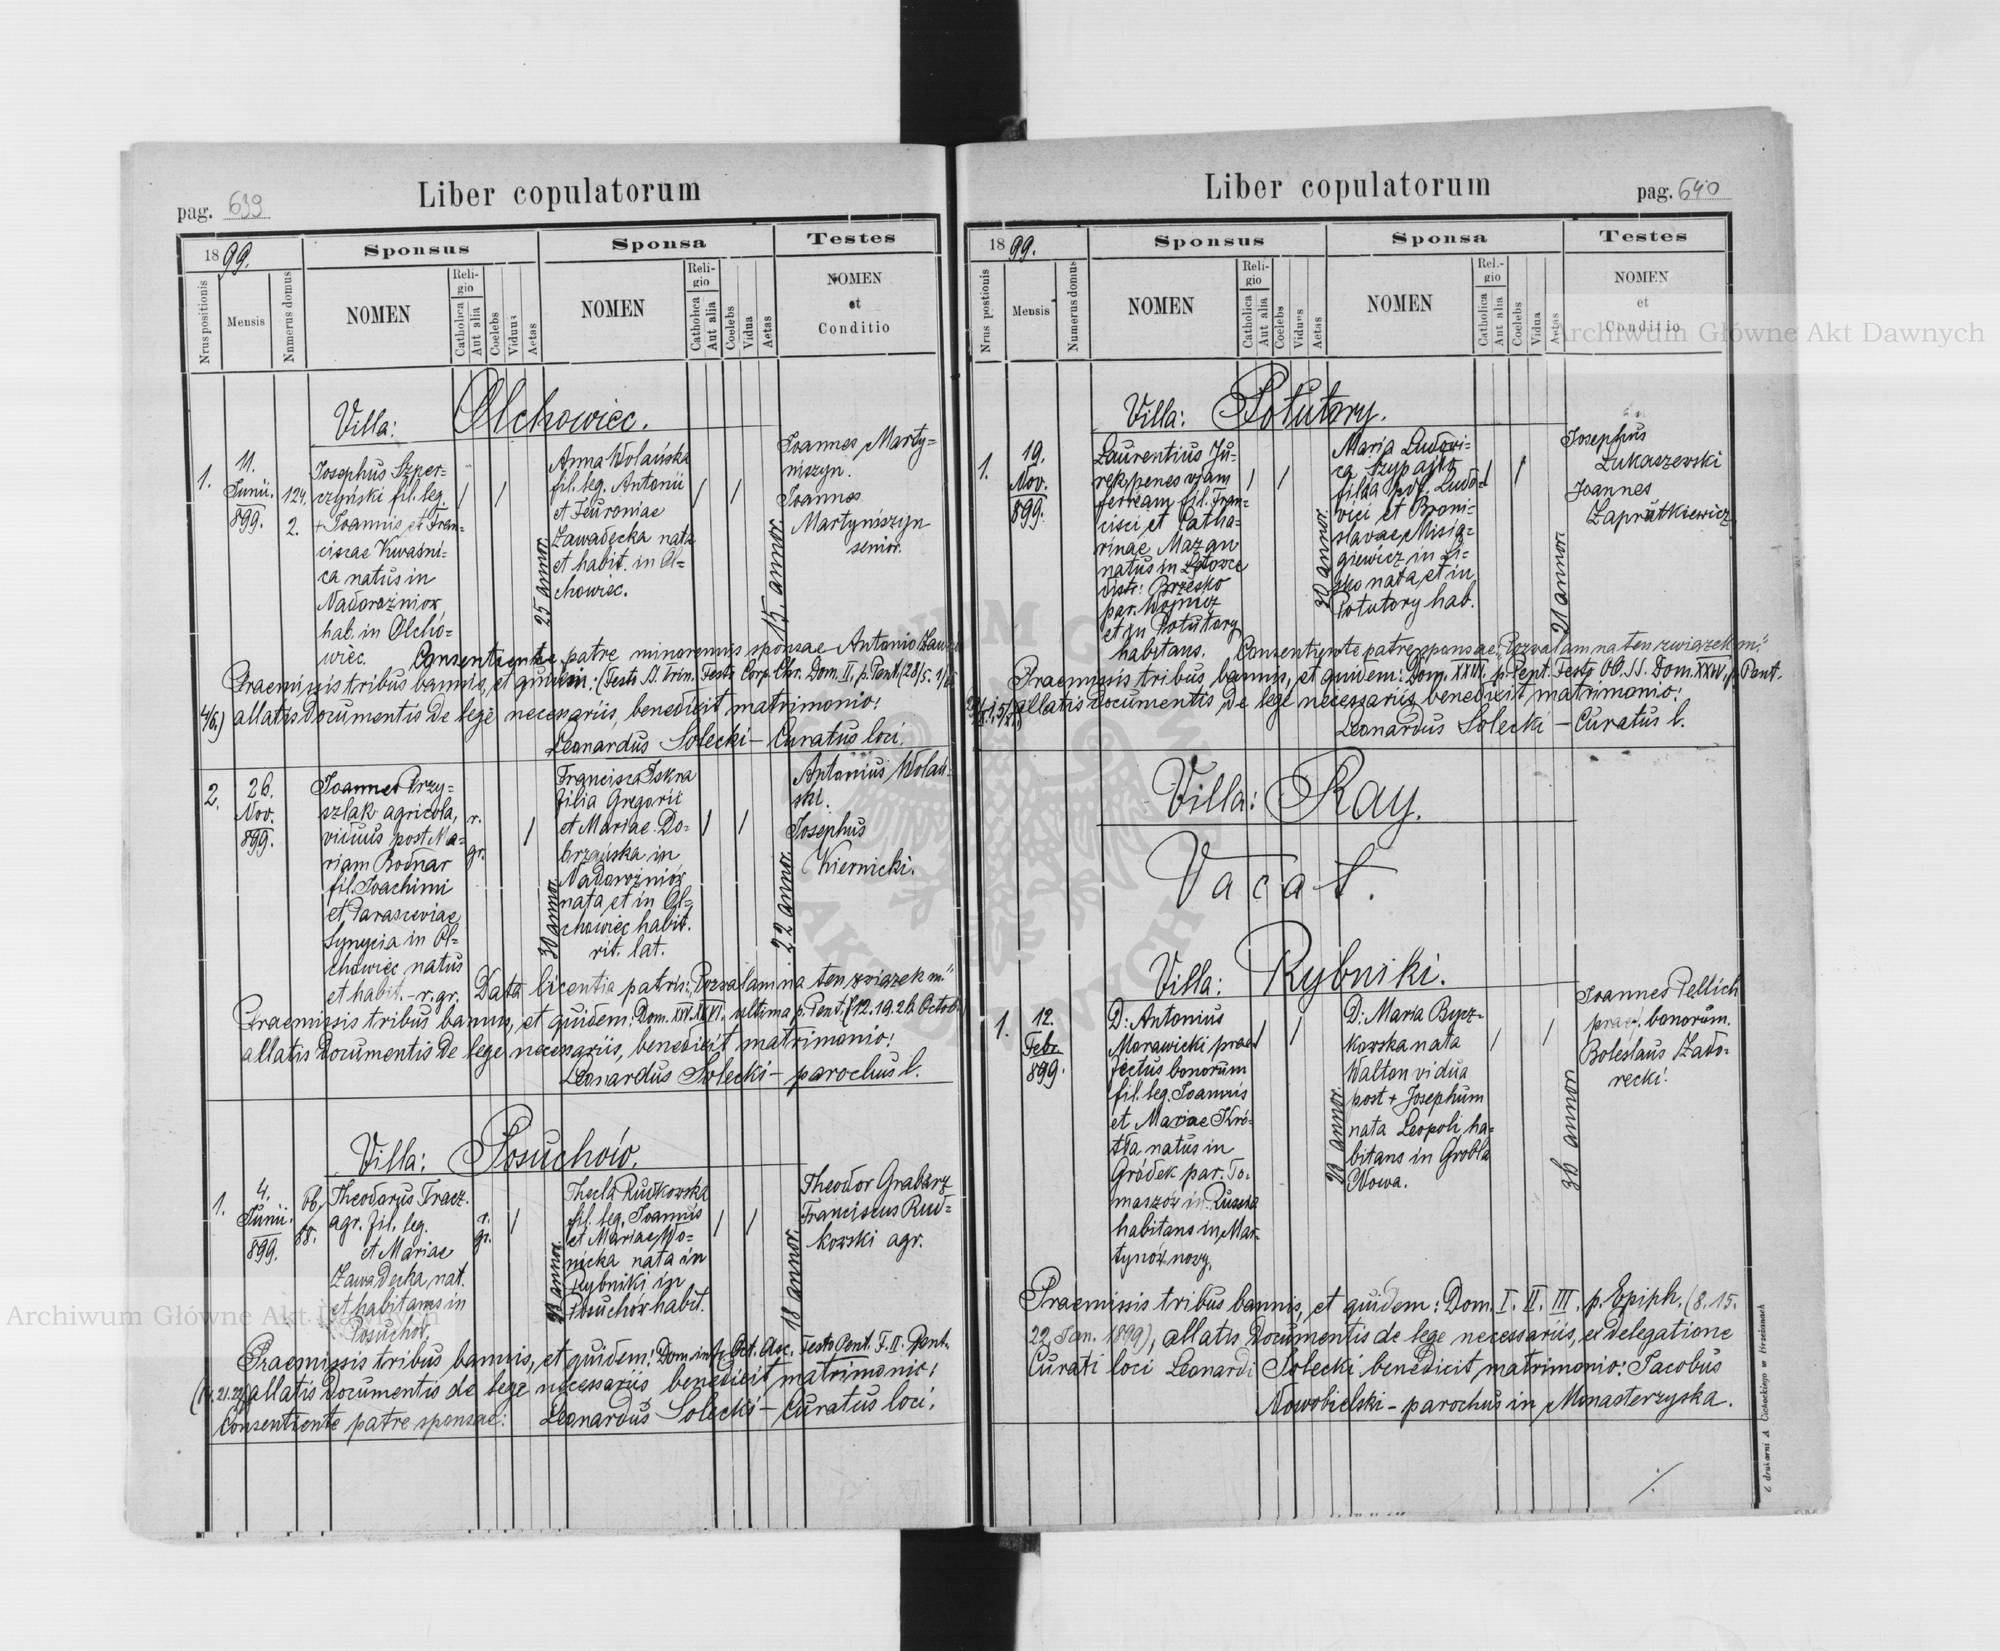 Liber copulatorum
pag. 639
1899.
Sponsus
Sponsa
Testes
Nrus positionis
Mensis
Numerus domus
NOMEN
Religio
Catholica
Aut alia
Coelebs
Viduus
Aetas
NOMEN
Religio
Catholica
Aut alia
Coelebs
Vidua
Aetas
NOMEN
et
Conditio
Villa: Olchowiec.
1.
11.
Junii.
899.
124.
2.
Josephus Szper-
czyński fil. leg.
+ Joannis et Fran-
ciscae Kwaśni-
ca natus in
Nadorożniow,
hab. in Olcho-
wiec.
25 annor.
Anna Wolańska
fil. leg. Antonii
et Feuroniae
Zawadecka nata
et habit. in Ol-
chowiec.
15. annor.
Joannes Marty-
niszyn.
Joannes
Martyniszyn
senior.
Consentiente patre minorennis sponsae Antonio
Praemissis tribus bannis, et quidem: (Festo S. Trin. Festo Corp. Chr. Dom. II, p. Pent. (28/5. 1/6
4/6.) allatis documentis de lege necessariis, benedixit matrimonio:
Leonardus Solecki – Curatus loci.
2.
26.
Nov.
899.
Joannes Przy-
szlak agricola,
viduus post Ma-
riam Bodnar
fil. Joachimi
et Parasceviae
Synycia in Ol-
chowiec natus
et habit. – r. gr.
r.
gr.
30 annor.
Francisca Iskra
filia Gregorii
et Mariae Do-
brzańska in
Nadorożniow
nata et in Ol-
chowiec habit.
rit. lat.
22 annor.
Antonius Wolań-
ski.
Josephus
Kiernicki.
Data licentia patris: „Pozwalam na ten związek m."
Praemissis tribus bannis, et quidem: Dom. ultima p. Pent. (12. 19. 26. Octob.)
allatis documentis de lege necessariis, benedixit matrimonio:
Leonardus Solecki – parochus l.
Villa: Posuchów.
1.
4.
Junii.
899.
66.
88.
Theodorus Tracz.
agr. fil. leg.
et Mariae
Zawadecka, nat.
et habitans in
Posuchow.
r.
gr.
23 annor.
Thecla Rudkowska
fil. leg. Joannis
et Mariae Wo-
nicka nata in
Rybniki in
Posuchow habit.
18 annor.
Theodor Grabarz
Franciscus Rud-
kowski agr.
Praemissis tribus bannis, et quidem: Dom. infr. Oct. Asc. Festo Pent. F. II. Pent.
(14. 21. 22/5) allatis documentis de lege necessariis benedixit matrimonio:
Consentiente patre sponsae: Leonardus Solecki – Curatus loci.
Liber copulatorum
pag. 640
1899.
Sponsus
Sponsa
Testes
Nrus postionis
Mensis
Numerus domus
NOMEN
Religio
Catholica
Aut alia
Coelebs
Viduus
Aetas
NOMEN
Rel.-gio
Catholica
Aut alia
Coelebs
Vidua
Aetas
NOMEN
et
Conditio
Villa: Potutory.
1.
19.
Nov.
899.
Laurentius Ju-
rek penes viam
ferream fil. Fran-
cisci et Catha-
rinae Mazan
natus in
distr: Brzesko
par. Wojnicz
et in Potutory
habitans.
30 annor.
Maria Ludovi-
ca Szypajło
filia Ludo-
vici et Broni-
slavae Misia-
giewicz in
nata, et in
Potutory hab.
21 annor.
Josephus
Lukaszewski
Joannes
Zaprutkiewicz
Consentiente patre sponsae: „Pozwalam na ten związek m."
Praemissis tribus bannis, et quidem: Dom. XXIII. p. Pent. Festo OO. SS. Dom. XXIV. p. Pent.
allatis documentis de lege necessariis benedixit matrimonio:
Leonardus Solecki – Curatus l.
Villa: Ray.
Vacat.
Villa: Rybniki.
1.
12.
Febr.
899.
D: Antonius
Morawicki prae-
fectus bonorum
fil. leg. Joannis
et Mariae Kró-
tta natus in
Gródek par. To-
maszów in Russia
habitans in Mar-
tynów nowy.
23 annor.
D: Maria Bycz-
kowska nata
Walton vidua
post + Josephum
nata Leopoli, ha-
bitans in Grobla
Nowa.
36 annor.
Joannes Pellich
praef. bonorum.
Boleslaus Zado-
recki.
Praemissis tribus bannis, et quidem: Dom. I. II. III. p. Epiph. (8. 15.
22 Jan. 1899), allatis documentis de lege necessariis, ex delegatione
Curati loci Leonardi Solecki benedixit matrimonio: Jacobus
Nowobielski – parochus in Monasterzyska.
Z drukarni A Cichockiego w Brzeżanach
Archiwum Główne Akt Dawnych
Archiwum Główne Akt Dawnych